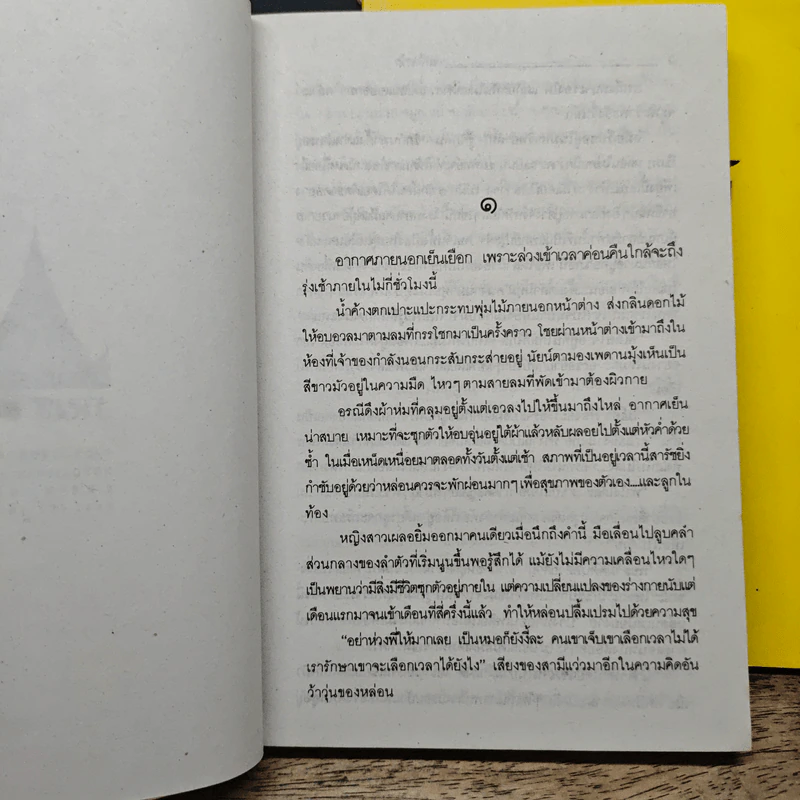 ๑
อากาศภายนอกเย็นเยือก เพราะล่วงเข้าเวลาค่อนคืนใกล้จะถึง
รุ่งเช้าภายในไม่กี่ชั่วโมงนี้
น้ำค้างตกเปาะแปะกระทบพุ่มไม้ภายนอกหน้าต่าง ส่งกลิ่นดอกไม้
ให้อบอวลมาตามลมที่กรรโชกมาเป็นครั้งคราว โชยผ่านหน้าต่างเข้ามาถึงใน
ห้องที่เจ้าของกำลังนอนกระสับกระส่ายอยู่ นัยน์ตามองเพดานมุ้งเห็นเป็น
สีขาวมัวอยู่ในความมืด ไหวๆ ตามสายลมที่พัดเข้ามาต้องผิวกาย
อรณีดึงผ้าห่มที่คลุมอยู่ตั้งแต่เอวลงไปให้ขึ้นมาถึงไหล่ อากาศเย็น
น่าสบาย เหมาะที่จะซุกตัวให้อบอุ่นอยู่ใต้ผ้าแล้วหลับผลอยไปตั้งแต่หัวค่ำด้วย
ซ้ำ ในเมื่อเหน็ดเหนื่อยมาตลอดทั้งวันตั้งแต่เช้า สภาพที่เป็นอยู่เวลานี้สารัชยิ่ง
กำชับอยู่ด้วยว่าหล่อนควรจะพักผ่อนมากๆ เพื่อสุขภาพของตัวเอง....และลูกใน
ท้อง
หญิงสาวเผลอยิ้มออกมาคนเดียวเมื่อนึกถึงคำนี้ มือเลื่อนไปลูบคลำ
ส่วนกลางของลำตัวที่เริ่มนูนขึ้นพอรู้สึกได้ แม้ยังไม่มีความเคลื่อนไหวใดๆ
เป็นพยานว่ามีสิ่งมีชีวิตซุกตัวอยู่ภายใน แต่ความเปลี่ยนแปลงของร่างกายนับแต่
เดือนแรกมาจนเข้าเดือนที่สี่ครึ่งนี้แล้ว ทำให้หล่อนปลื้มเปรมไปด้วยความสุข
“อย่าห่วงพี่ให้มากเลย เป็นหมอก็ยังงี้ละ คนเขาเจ็บเขาเลือกเวลาไม่ได้
เรารักษาเขาจะเลือกเวลาได้ยังไง” เสียงของสามีแว่วมาอีกในความคิดอัน
ว้าวุ่นของหล่อน